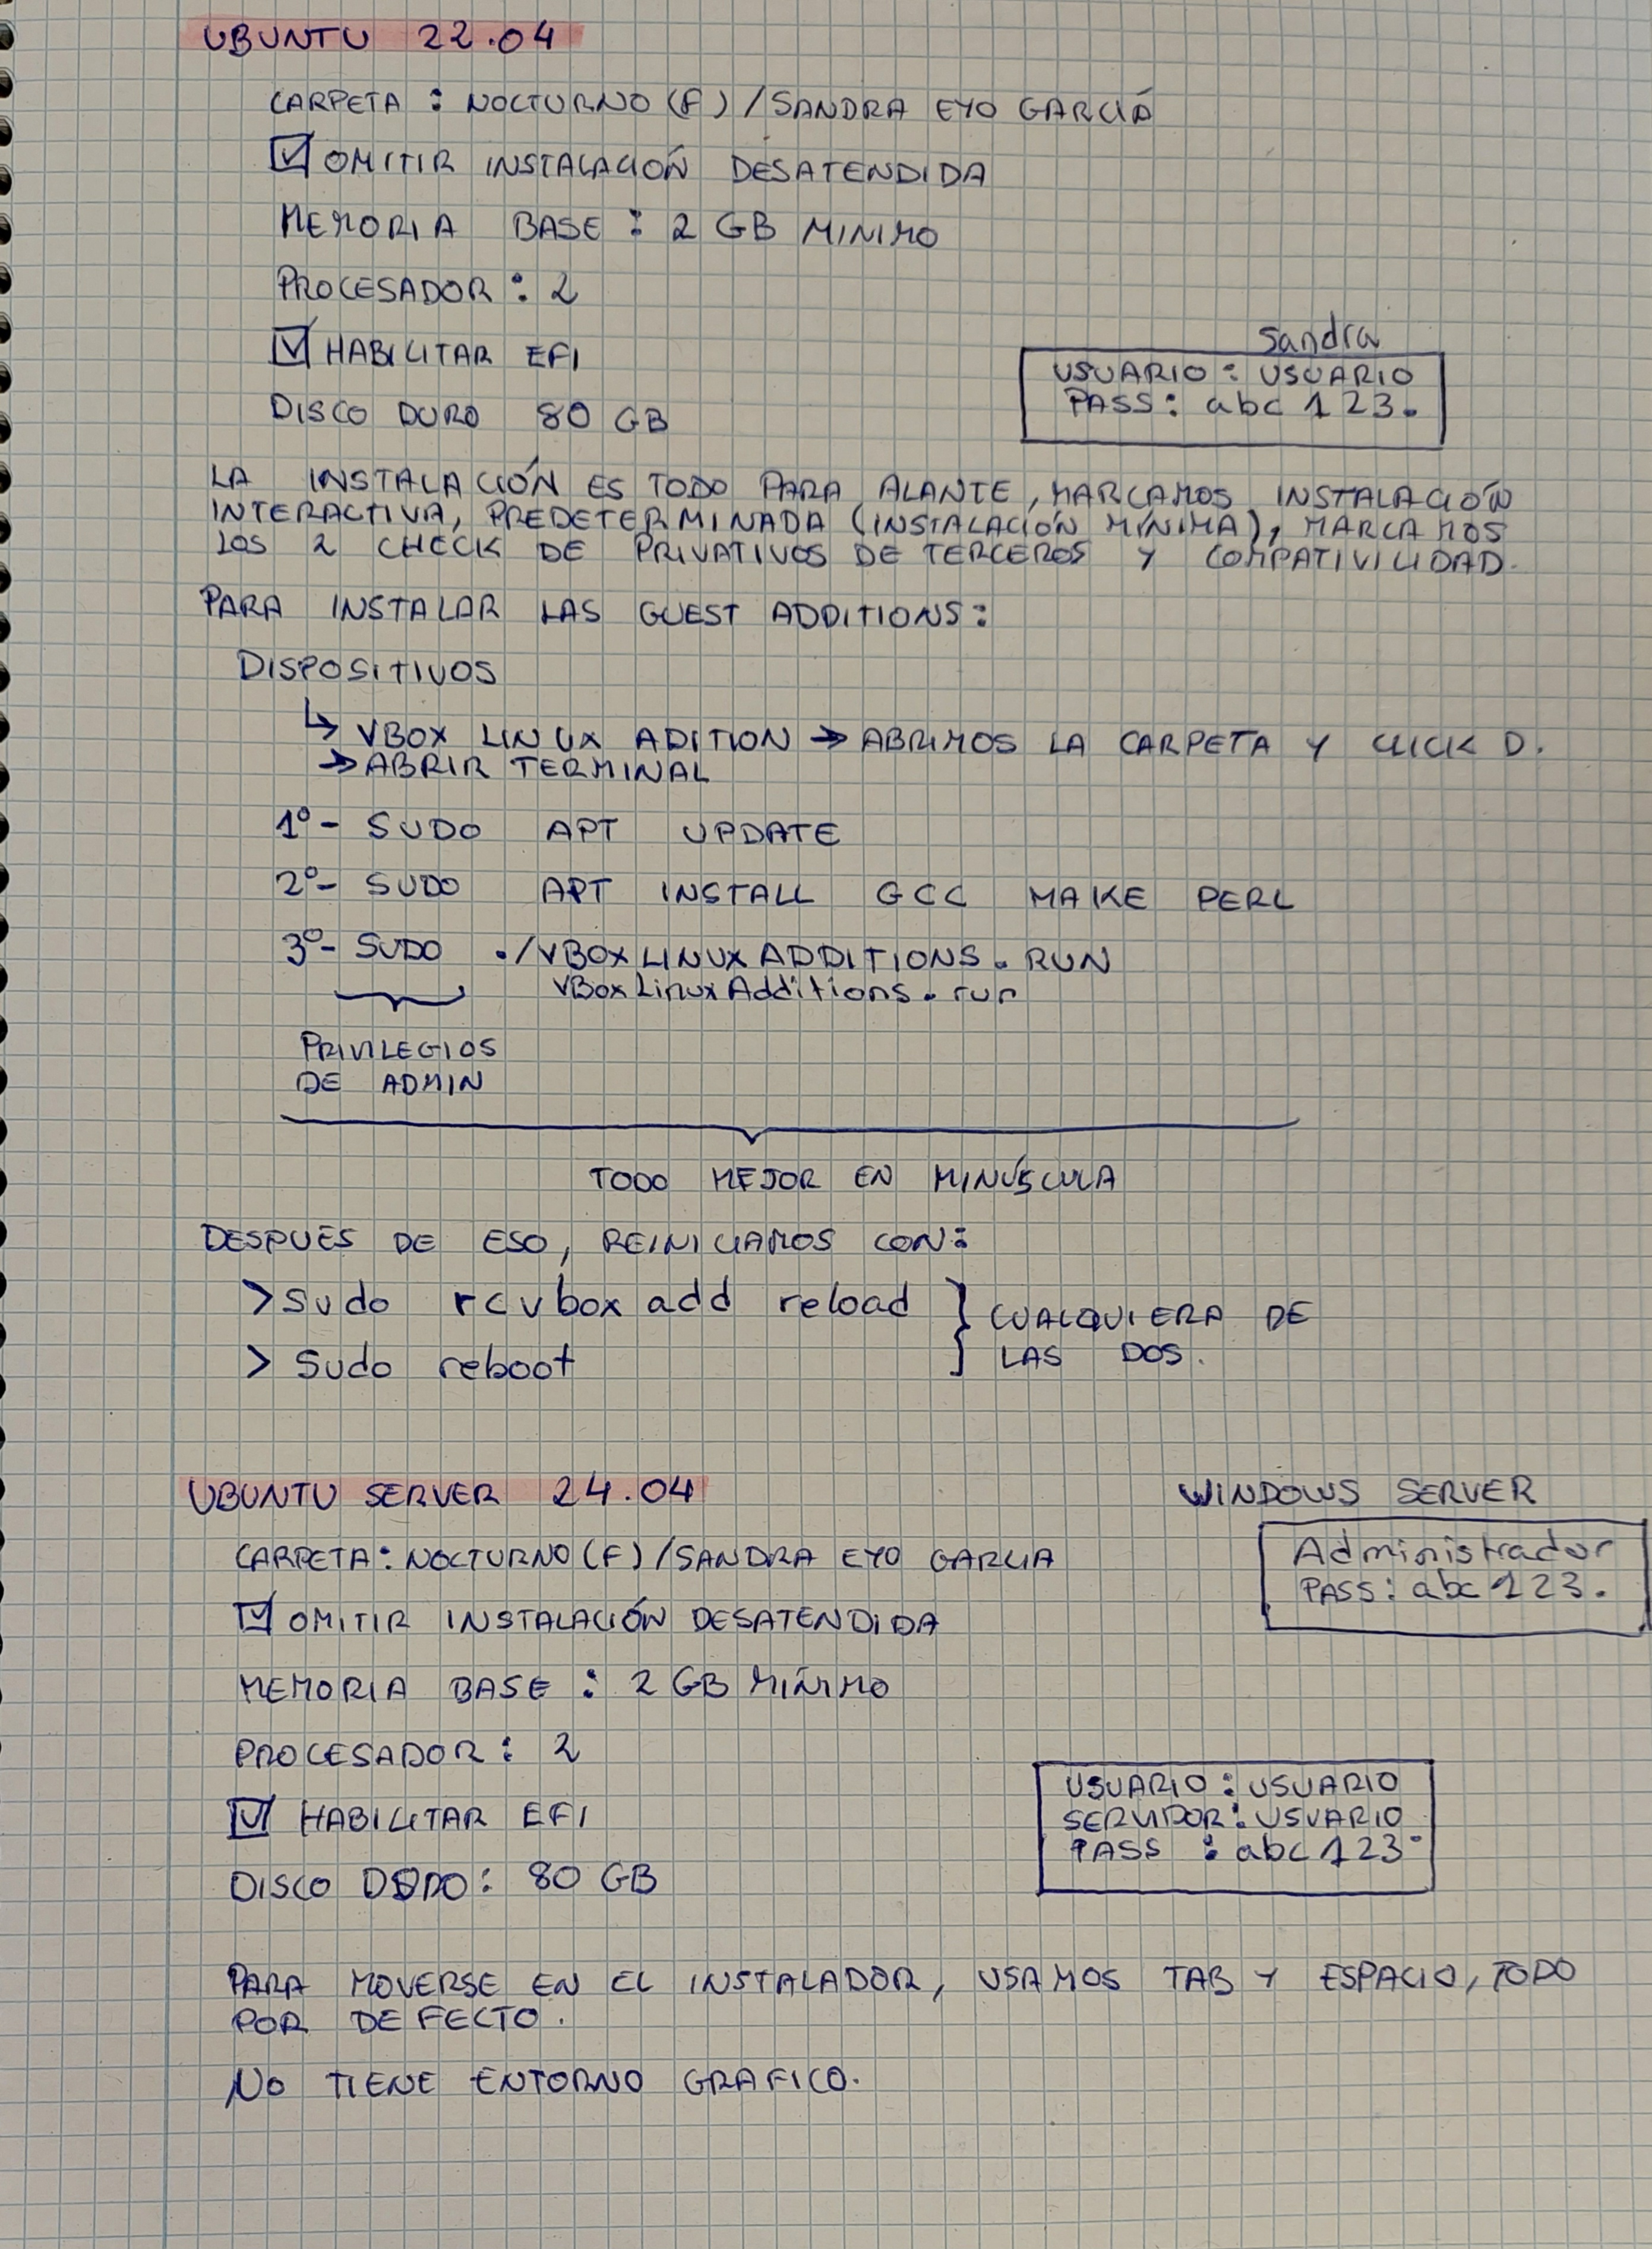 UBUNTU 22.04
CARPETA : NOCTURNO (F) / SANDRA EYO GARCIÁ
☑ OMITIR INSTALACIÓN DESATENDIDA
MEMORIA BASE : 2 GB MINIMO
PROCESADOR : 2
☑ HABILITAR EFI
DISCO DURO 80 GB
Sandra
USUARIO : USUARIO
PASS : abc123.
LA INSTALACIÓN ES TODO PARA ALANTE, MARCAMOS INSTALACIÓN
INTERACTIVA, PREDETERMINADA (INSTALACIÓN MÍNIMA), MARCAMOS
LOS 2 CHECK DE PRIVATIVOS DE TERCEROS Y COMPATIVILIDAD.
PARA INSTALAR LAS GUEST ADDITIONS:
DISPOSITIVOS
↳ VBOX LINUX ADITION → ABRIMOS LA CARPETA Y CLICK D.
→ ABRIR TERMINAL
1º- SUDO APT UPDATE
2º- SUDO APT INSTALL GCC MAKE PERL
3º- SUDO ./VBOXLINUXADDITIONS.RUN
VBoxLinuxAdditions.run
PRIVILEGIOS
DE ADMIN
TODO MEJOR EN MINÚSCULA
DESPUÉS DE ESO, REINICIAMOS CON:
> Sudo rcvbox add reload
> Sudo reboot
} CUALQUIERA DE
LAS DOS.
UBUNTU SERVER 24.04
CARPETA : NOCTURNO (F) / SANDRA EYO GARCIA
☑ OMITIR INSTALACIÓN DESATENDIDA
MEMORIA BASE : 2 GB MÍNIMO
PROCESADOR : 2
☑ HABILITAR EFI
DISCO : 80 GB
WINDOWS SERVER
Administrador
PASS : abc123.
USUARIO : USUARIO
SERVIDOR : USUARIO
PASS : abc123.
PARA MOVERSE EN EL INSTALADOR, USAMOS TAB Y ESPACIO, TODO
POR DEFECTO.
NO TIENE ENTORNO GRAFICO.